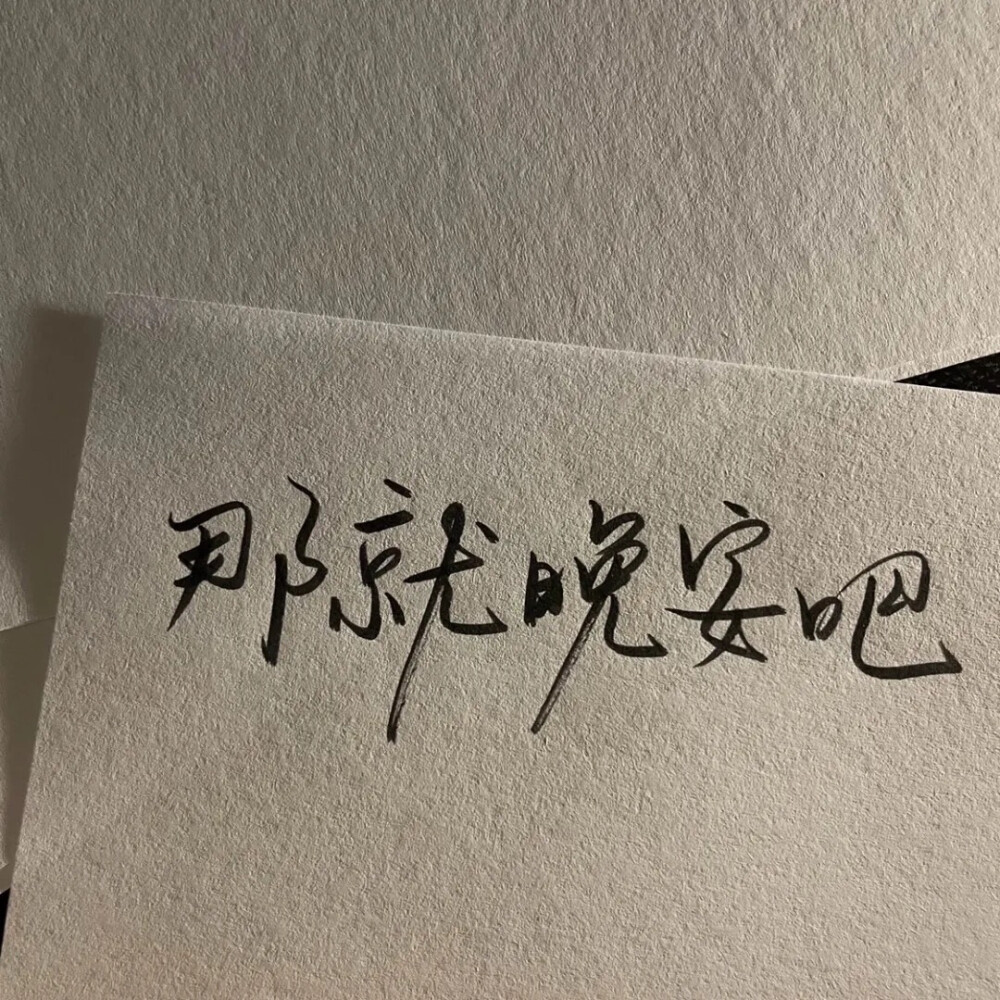 那就晚安吧